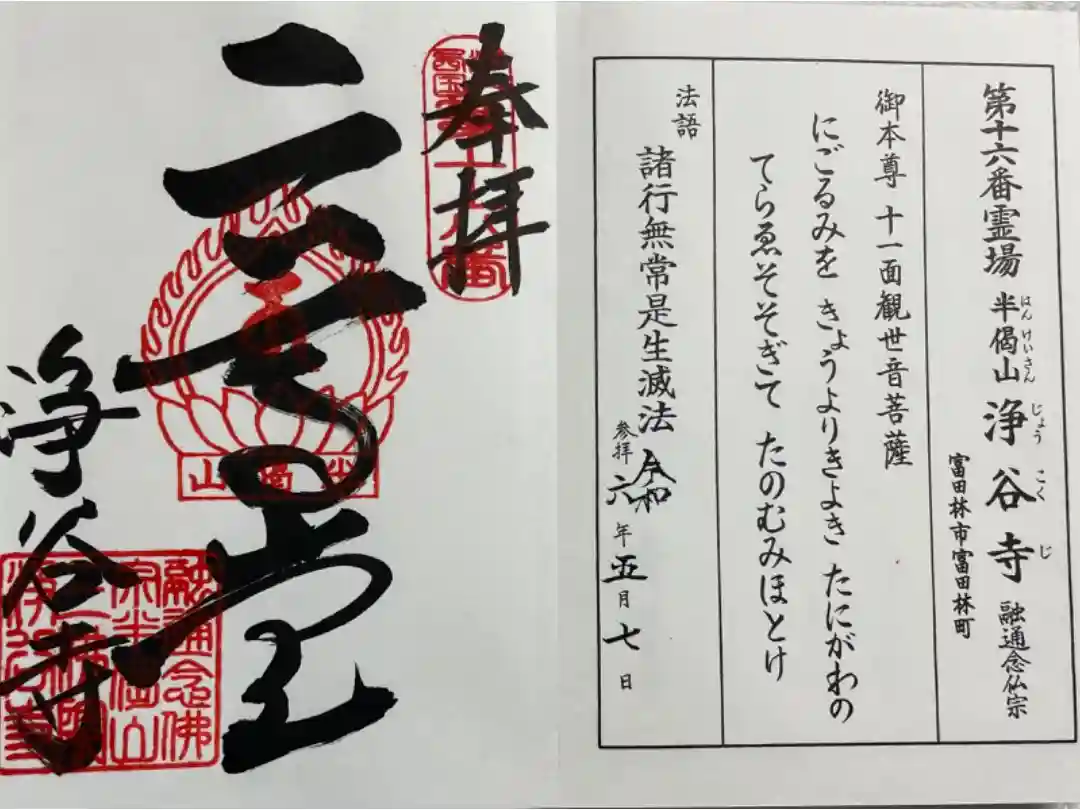 第十六番霊場 半偈山 浄谷寺 融通念仏宗
はんけいさん じょうこくじ
富田林市富田林町
御本尊 十一面観世音菩薩
にごるみを きょうよりきよき たにがわの
てらゑそそぎて たのむみほとけ
法語
諸行無常是生滅法
参拝 令和六年五月七日
奉拝
半偈山
浄谷寺
融通念佛
宗半偈山